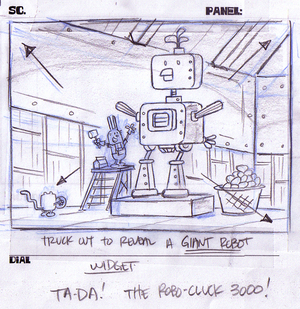 SC. PANEL:
TRUCK OUT TO REVEAL A GIANT ROBOT
DIAL
WIDGET
TA-DA! THE ROBO-CLUCK 3000!